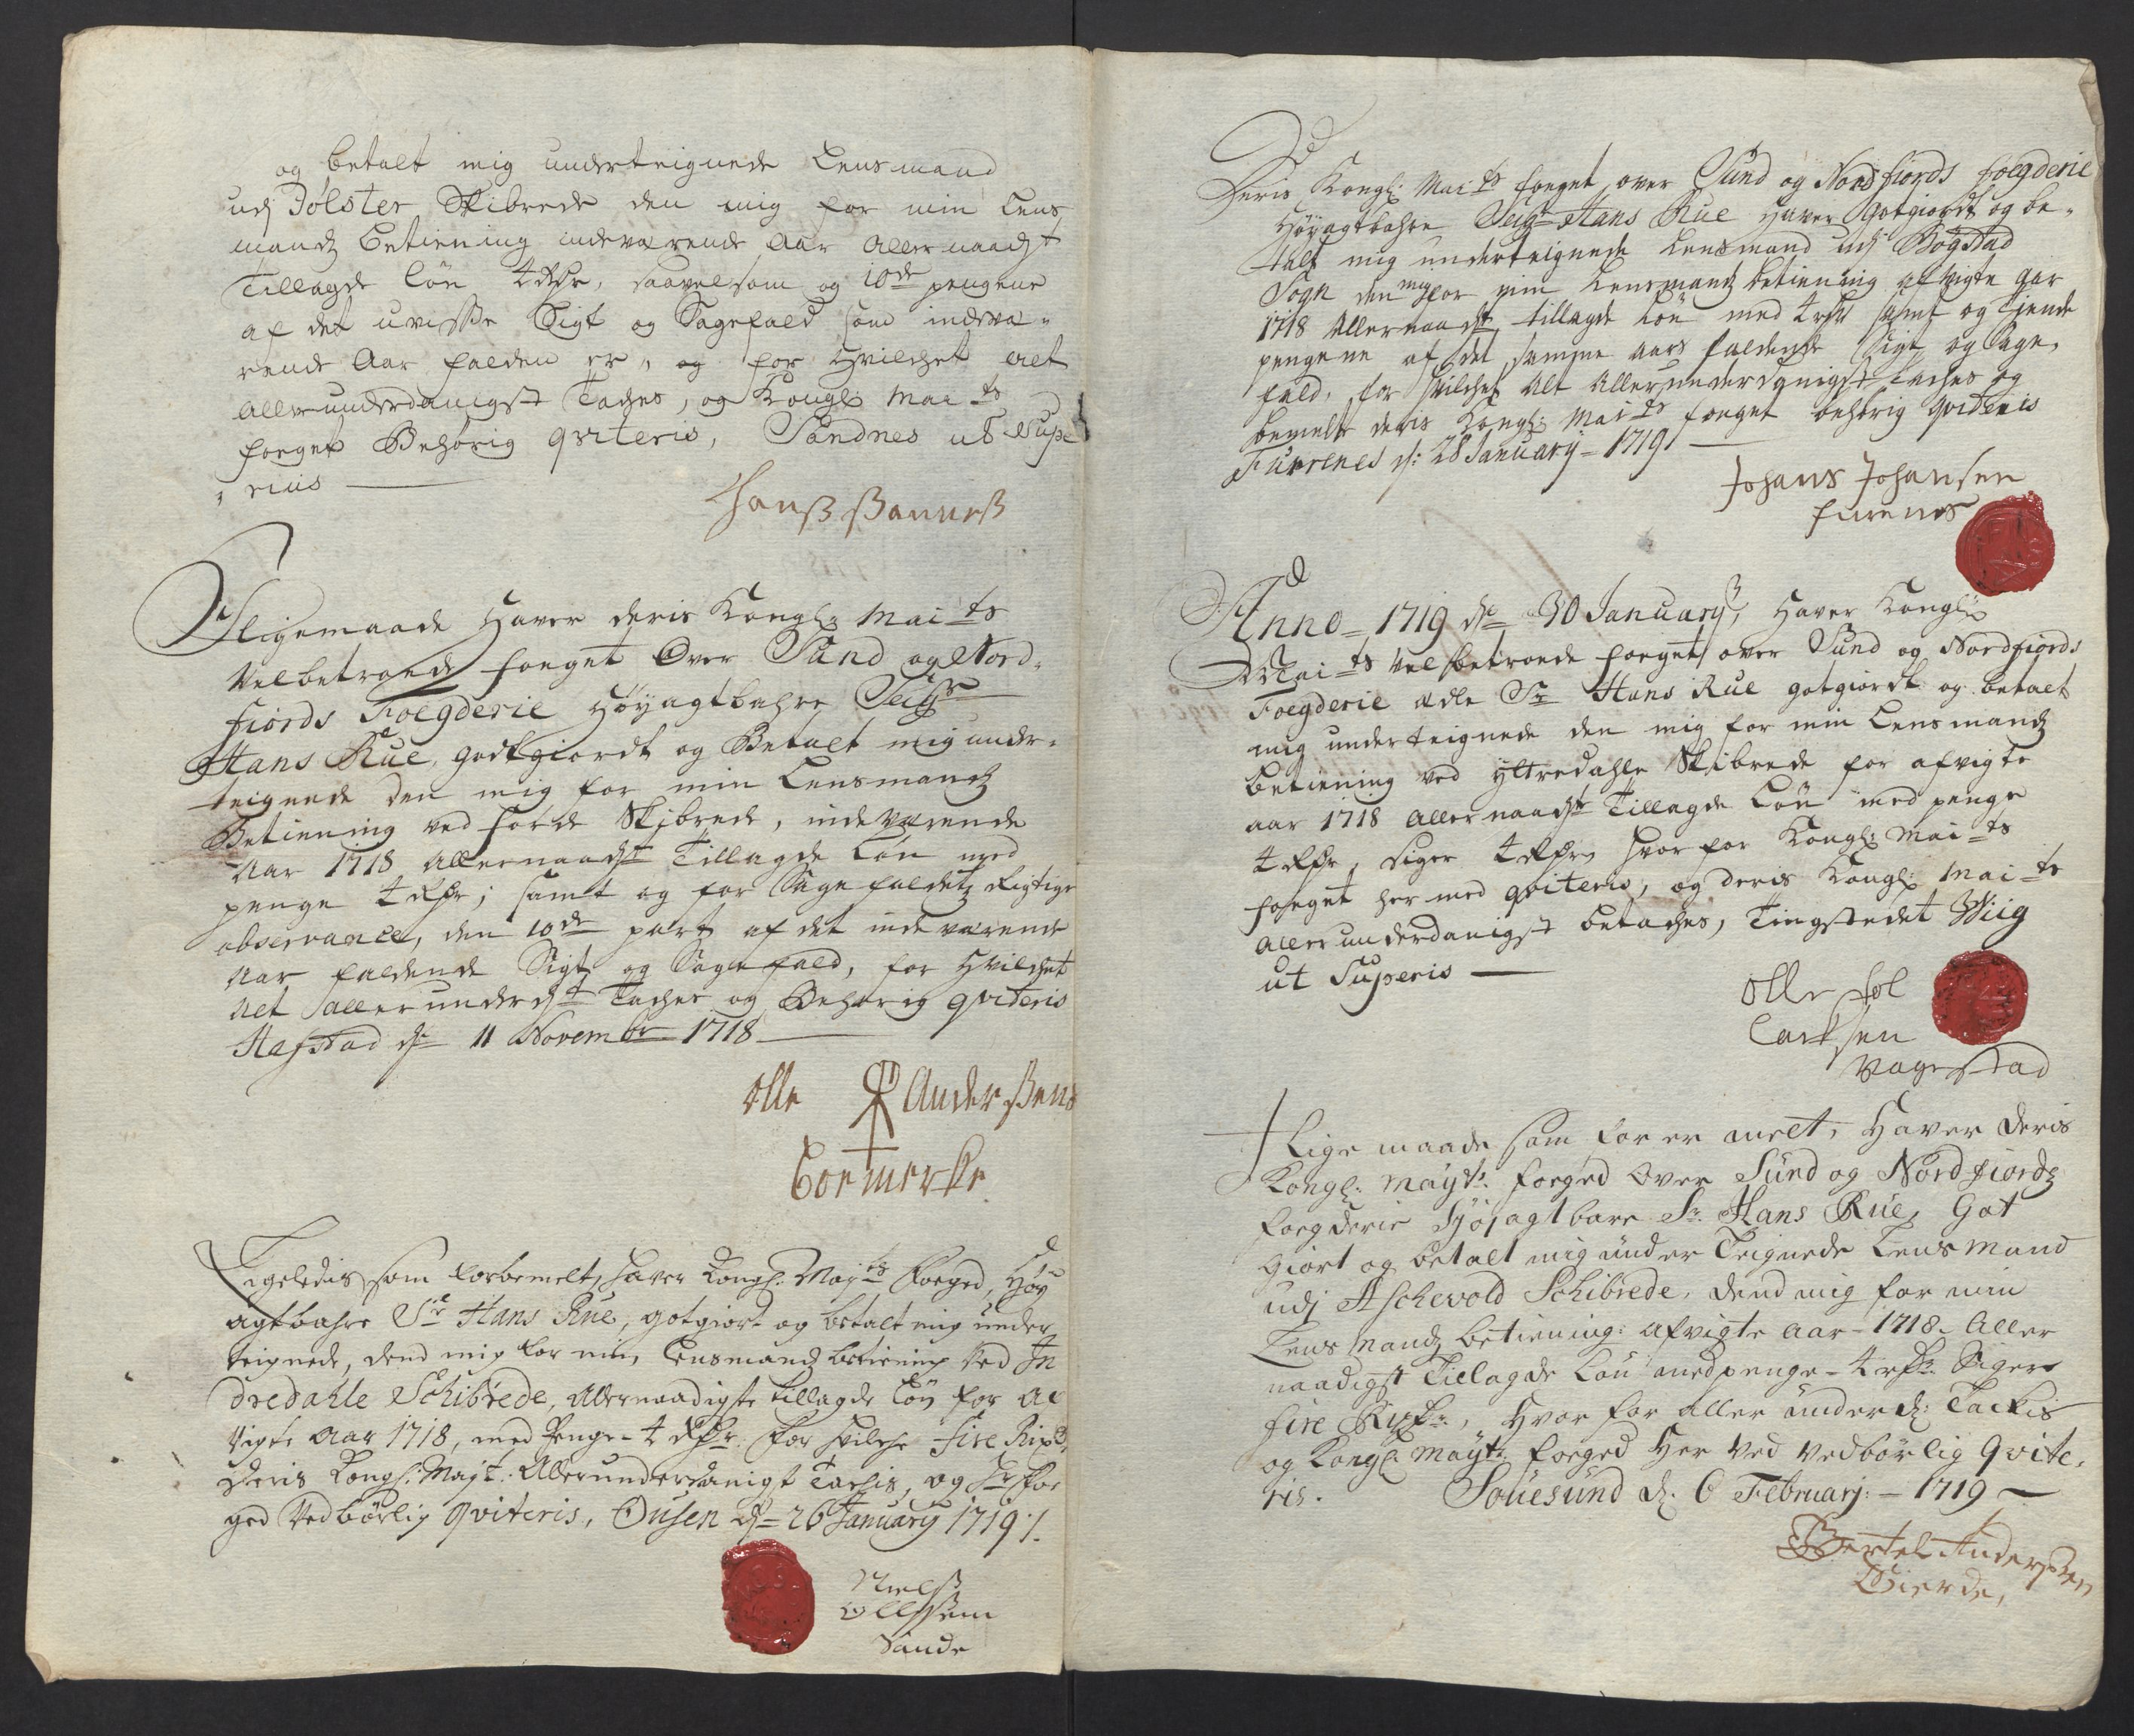 og betalt mig underteignede Lensmand
udj Jölster Skibrede den mig for min Lens
mandz betiening indeværende Aar Allernaadst
Tillagde Lön 4 Rdr, saavelsom og 10de pengene
af det uvisse Sigt og Sagefald som indevæ-
rende Aar falden er, og for hvilchet alt
Allerunderdanigst Taches, og Kongl: Mai ts
foeget Behörig qviteris, Sandnes ut Supe
rius
Hanß ßanneß
I ligemaade Haver deris Kongl: Mai ts
Velbetroede foeget Over Sund og Nord-
fiords Foegderie Höyagtbahre Seigr
Hans Rue, godtgiordt og Betalt mig under-
teignede den mig for min Lensmandz
Betiening ved förde Skibrede, indeværende
Aar 1718 Allernaadst Tillagde Lön med
penge 4 Rdr; samt og for Sagefaldetz Rigtige
observance, den 10de part af det indeværende
Aar faldende Sigt og Sagefald, for Hvilchet
Alt allerunderdst Taches og Behörig qviteris
Hafstad d: 11 Novembr 1718
Olle Anderßens
Boemerke
Ligeledis som forbemelt, haver Kongl: Majts foeged, Höy
agtbahre Sr Hans Rue, gotgiort og betalt mig under
teignede, dend mig for min Lensmandz betiening ved In
dredahle Schibrede, Allernaadigste tillagde Lön for af
vigte Aar 1718, med Penge 4 Rdr for hvilche fire Rixd,
Deris Kongl: Majt: Allerunderdanigst Tachis, og hr foe
ged Vedbörlig Qviteris, Ousen d= 26 January 1719 ./.
Nielß
Ollßen
Sande
Deris Kongl: Mai ts foeget over Sund og Nordfiords foegderie
Höyagtbahre Seigr Hans Rue Haver Gotgiordt og be-
talt mig underteignede Lensmand udj Bogstad
Sogn den mig for min Lensmandz betiening afvigte Aar
1718 Allernaadst tillagde Lön med 4 rdr samt og Tiende
pengene af det samme aars faldende Sigt og Sage-
fald, for hvilchet Alt Allerunderdanigst taches og
bemelte deris Kongl: Mai ts foeget behörig qviteris
Furrenes d: 28 January = 1719
Johans Johansen
furenes
Anno = 1719 d= 30 January, Haver Kongl:
Mai ts velbetroede foeget over Sund og Nordfiords
Foegderie ædle Sr Hans Rue gotgiordt og betalt
mig underteignede den mig for min Lensmandz
betiening ved Yttredahle Skibrede for afvigte
aar 1718 Allernaadst Tillagde Lön med penge
4 Rdr, siger 4 Rdr, hvor for Kongl: Mai ts
foeget her med qviteris, og deris Kongl: Mai ts
allerunderdanigst betaches, Tingstedet Wiig
ut Superis
Olle Fol
Larsen
Vagestad
I Lige maade som for er melt, Haver Deris
Kongl: Mayts: foeged Over Sund og Nordfiordz
foegderie Höjagtbare Sr. Hans Rue, Got
giort og betalt mig under Teignede Lens Mand
udj Aschevold Schibrede, dend mig for min
Lens Mandz betiening: afvigte Aar - 1718. Aller
naadigst Tillagde Lön med penge - 4 rdr Siger
fire Rixdr, Hvor for aller underd: Tackis
og Kongl: Mayts: foeged Her Ved Vedbörlig Qvite-
ris. Souesund d: 6 Februarj: - 1719
Bertel Anderßen
Gierde,